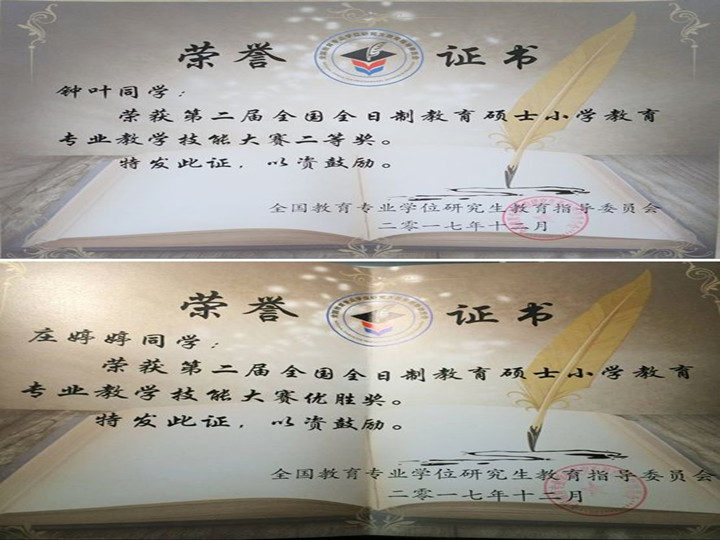 荣誉 证书
钟叶同学：
荣获第二届全国全日制教育硕士小学教育
专业教学技能大赛二等奖。
特发此证，以资鼓励。
全国教育专业学位研究生教育指导委员会
二零一七年十二月
荣誉 证书
庄婷婷同学：
荣获第二届全国全日制教育硕士小学教育
专业教学技能大赛优胜奖。
特发此证，以资鼓励。
全国教育专业学位研究生教育指导委员会
二零一七年十二月